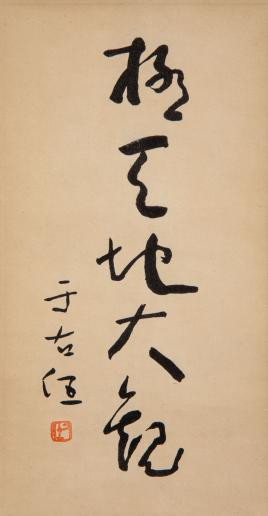 極天地大觀
于右任